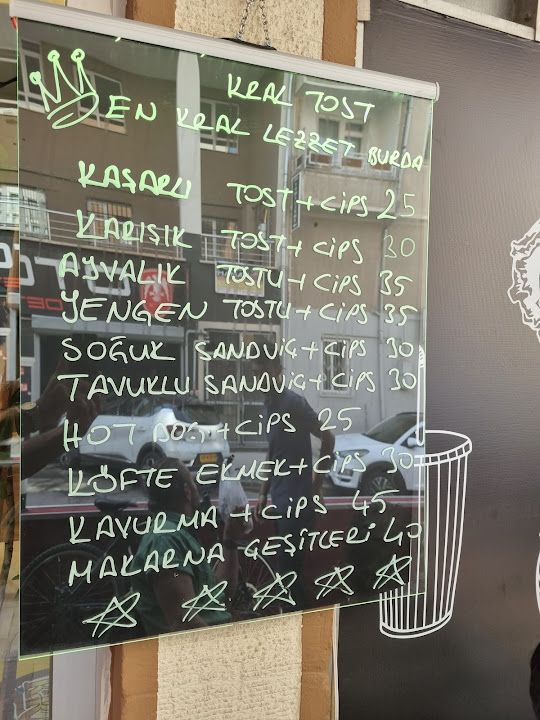 KRAL TOST
EN KRAL LEZZET BURDA
KAŞARLI TOST + CİPS 25
KARIŞIK TOST + CİPS 30
AYVALIK TOSTU + CİPS 35
YENGEN TOSTU + CİPS 35
SOĞUK SANDVİÇ + CİPS 30
TAVUKLU SANDVİÇ + CİPS 30
HOT DOG + CİPS 25
KÖFTE EKMEK + CİPS 30
KAVURMA + CİPS 45
MAKARNA ÇEŞİTLERİ 40